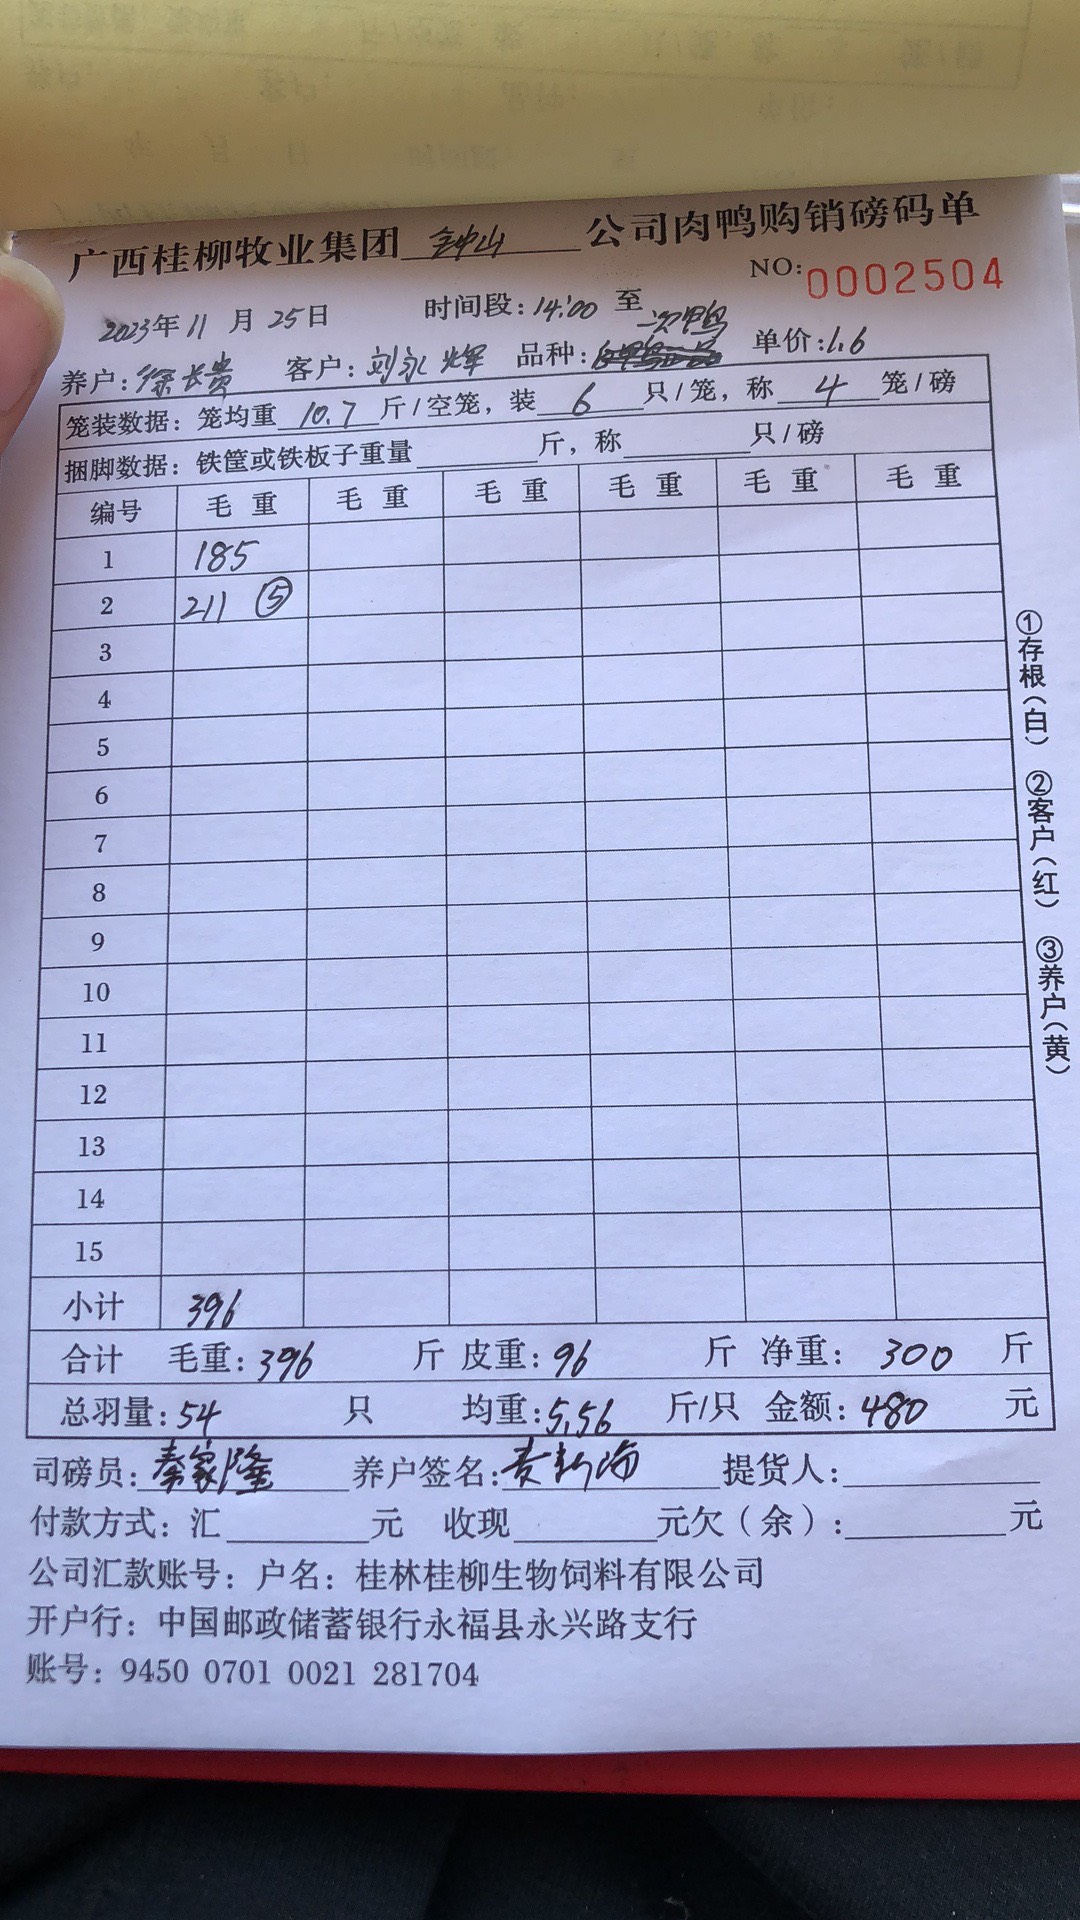 广西桂柳牧业集团 钟山 公司肉鸭购销磅码单
NO:0002504
2023年11月25日 时间段:14:00至
养户:徐长贵 客户:刘永辉 品种:次鸭 单价:1.6
笼装数据:笼均重 10.7 斤/空笼,装 6 只/笼,称 4 笼/磅
捆脚数据:铁筐或铁板子重量 斤,称 只/磅
编号 毛重 毛重 毛重 毛重 毛重 毛重
1 185
2 211 ⑤
3
4
5
6
7
8
9
10
11
12
13
14
15
小计 396
合计 毛重:396 斤 皮重:96 斤 净重: 300 斤
总羽量:54 只 均重:5.56 斤/只 金额:480 元
司磅员:秦家隆 养户签名: 提货人:
付款方式:汇 元 收现 元欠(余): 元
公司汇款账号:户名:桂林桂柳生物饲料有限公司
开户行:中国邮政储蓄银行永福县永兴路支行
账号:9450 0701 0021 281704
①存根(白) ②客户(红) ③养户(黄)